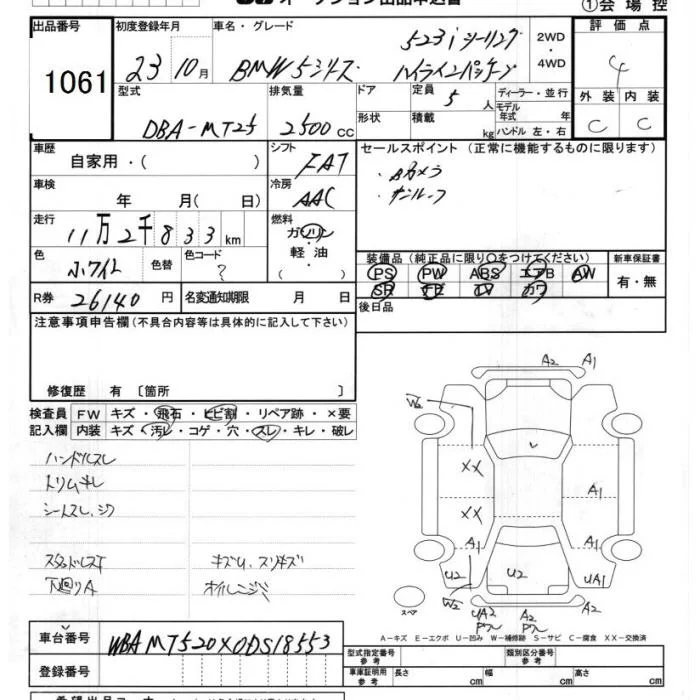 オークション出品申込書
①会場控
出品番号 1061
初度登録年月 23 10月
車名・グレード BMW 5シリーズ 523i ツーリング ハイラインパッケージ
2WD ・ 4WD
評価点 4
外装 C 内装 C
型式 DBA-MT25
排気量 2500 cc
ドア 形状
定員 5 人
積載 kg
ディーラー・並行
モデル年式 年
ハンドル 左・右
車歴 自家用・( )
シフト FAT
セールスポイント (正常に機能するものに限ります)
・Bカメラ
・サンルーフ
車検 年 月( 日)
冷房 AAC
走行 11万2千833km
燃料 ガソリン・軽油・( )
色 ホワイト 色替 色コード ?
装備品 (純正品に限り○をつけてください)
PS PW ABS エアB AW
SR TV カワ
新車保証書 有・無
R券 26140 円 名変通知期限 月 日
後日品
注意事項申告欄 (不具合内容等は具体的に記入して下さい)
修復歴 有 〔箇所 〕
検査員記入欄
FW キズ・飛石・ヒビ割・リペア跡・×要
内装 キズ・汚レ・コゲ・穴・スレ・キレ・破レ
ハンドルスレ
トリムキレ
シートスレ、シワ
下廻りA
キズU、スリキズ
A2 A1
W2
XX
A1
XX
A1 A1
U2 U2 UA1
W2 UA2 A2 A2
スペア
A－キズ E－エクボ U－凹み W－補修跡 S－サビ C－腐食 XX－交換済
車台番号 WBAMT520X0DS18553
登録番号
型式指定番号 参考 類別区分番号 参考
車庫証明用 参考 長さ cm 幅 cm 高さ cm